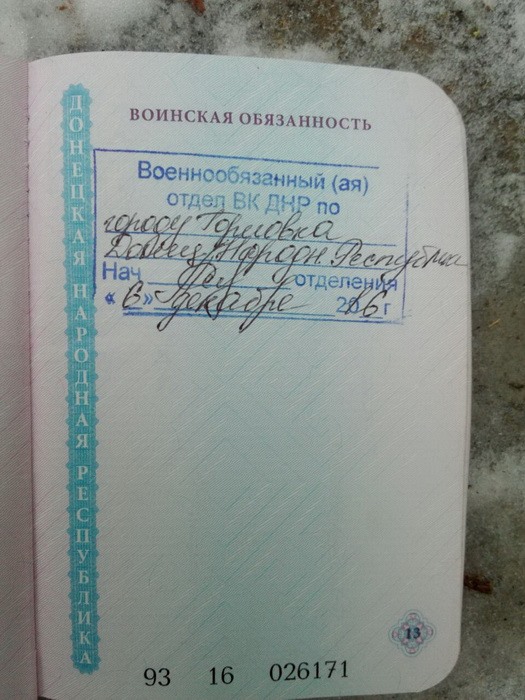 ДОНЕЦКАЯ НАРОДНАЯ РЕСПУБЛИКА
ВОИНСКАЯ ОБЯЗАННОСТЬ
Военнообязанный (ая)
отдел ВК ДНР по
городу Горловка
Донец. Народн. Республика
Нач отделения
« 6 » декабре 2016 г
13
93 16 026171